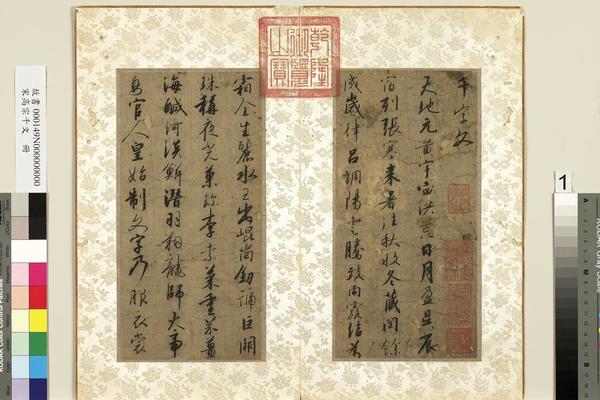 乾隆御覽之寶
千字文
天地元黄宇宙洪荒日月盈昃辰
宿列張寒来暑往秋收冬藏閏餘
成歲律呂調陽雲騰致雨露結為
霜金生麗水玉出崑崗劔號巨闕
珠稱夜光菓珍李柰菜重芥薑
海鹹河淡鱗潛羽翔龍師火帝
鳥官人皇始制文字乃服衣裳
故書 000149N000000000
宋高宗千文 冊
1